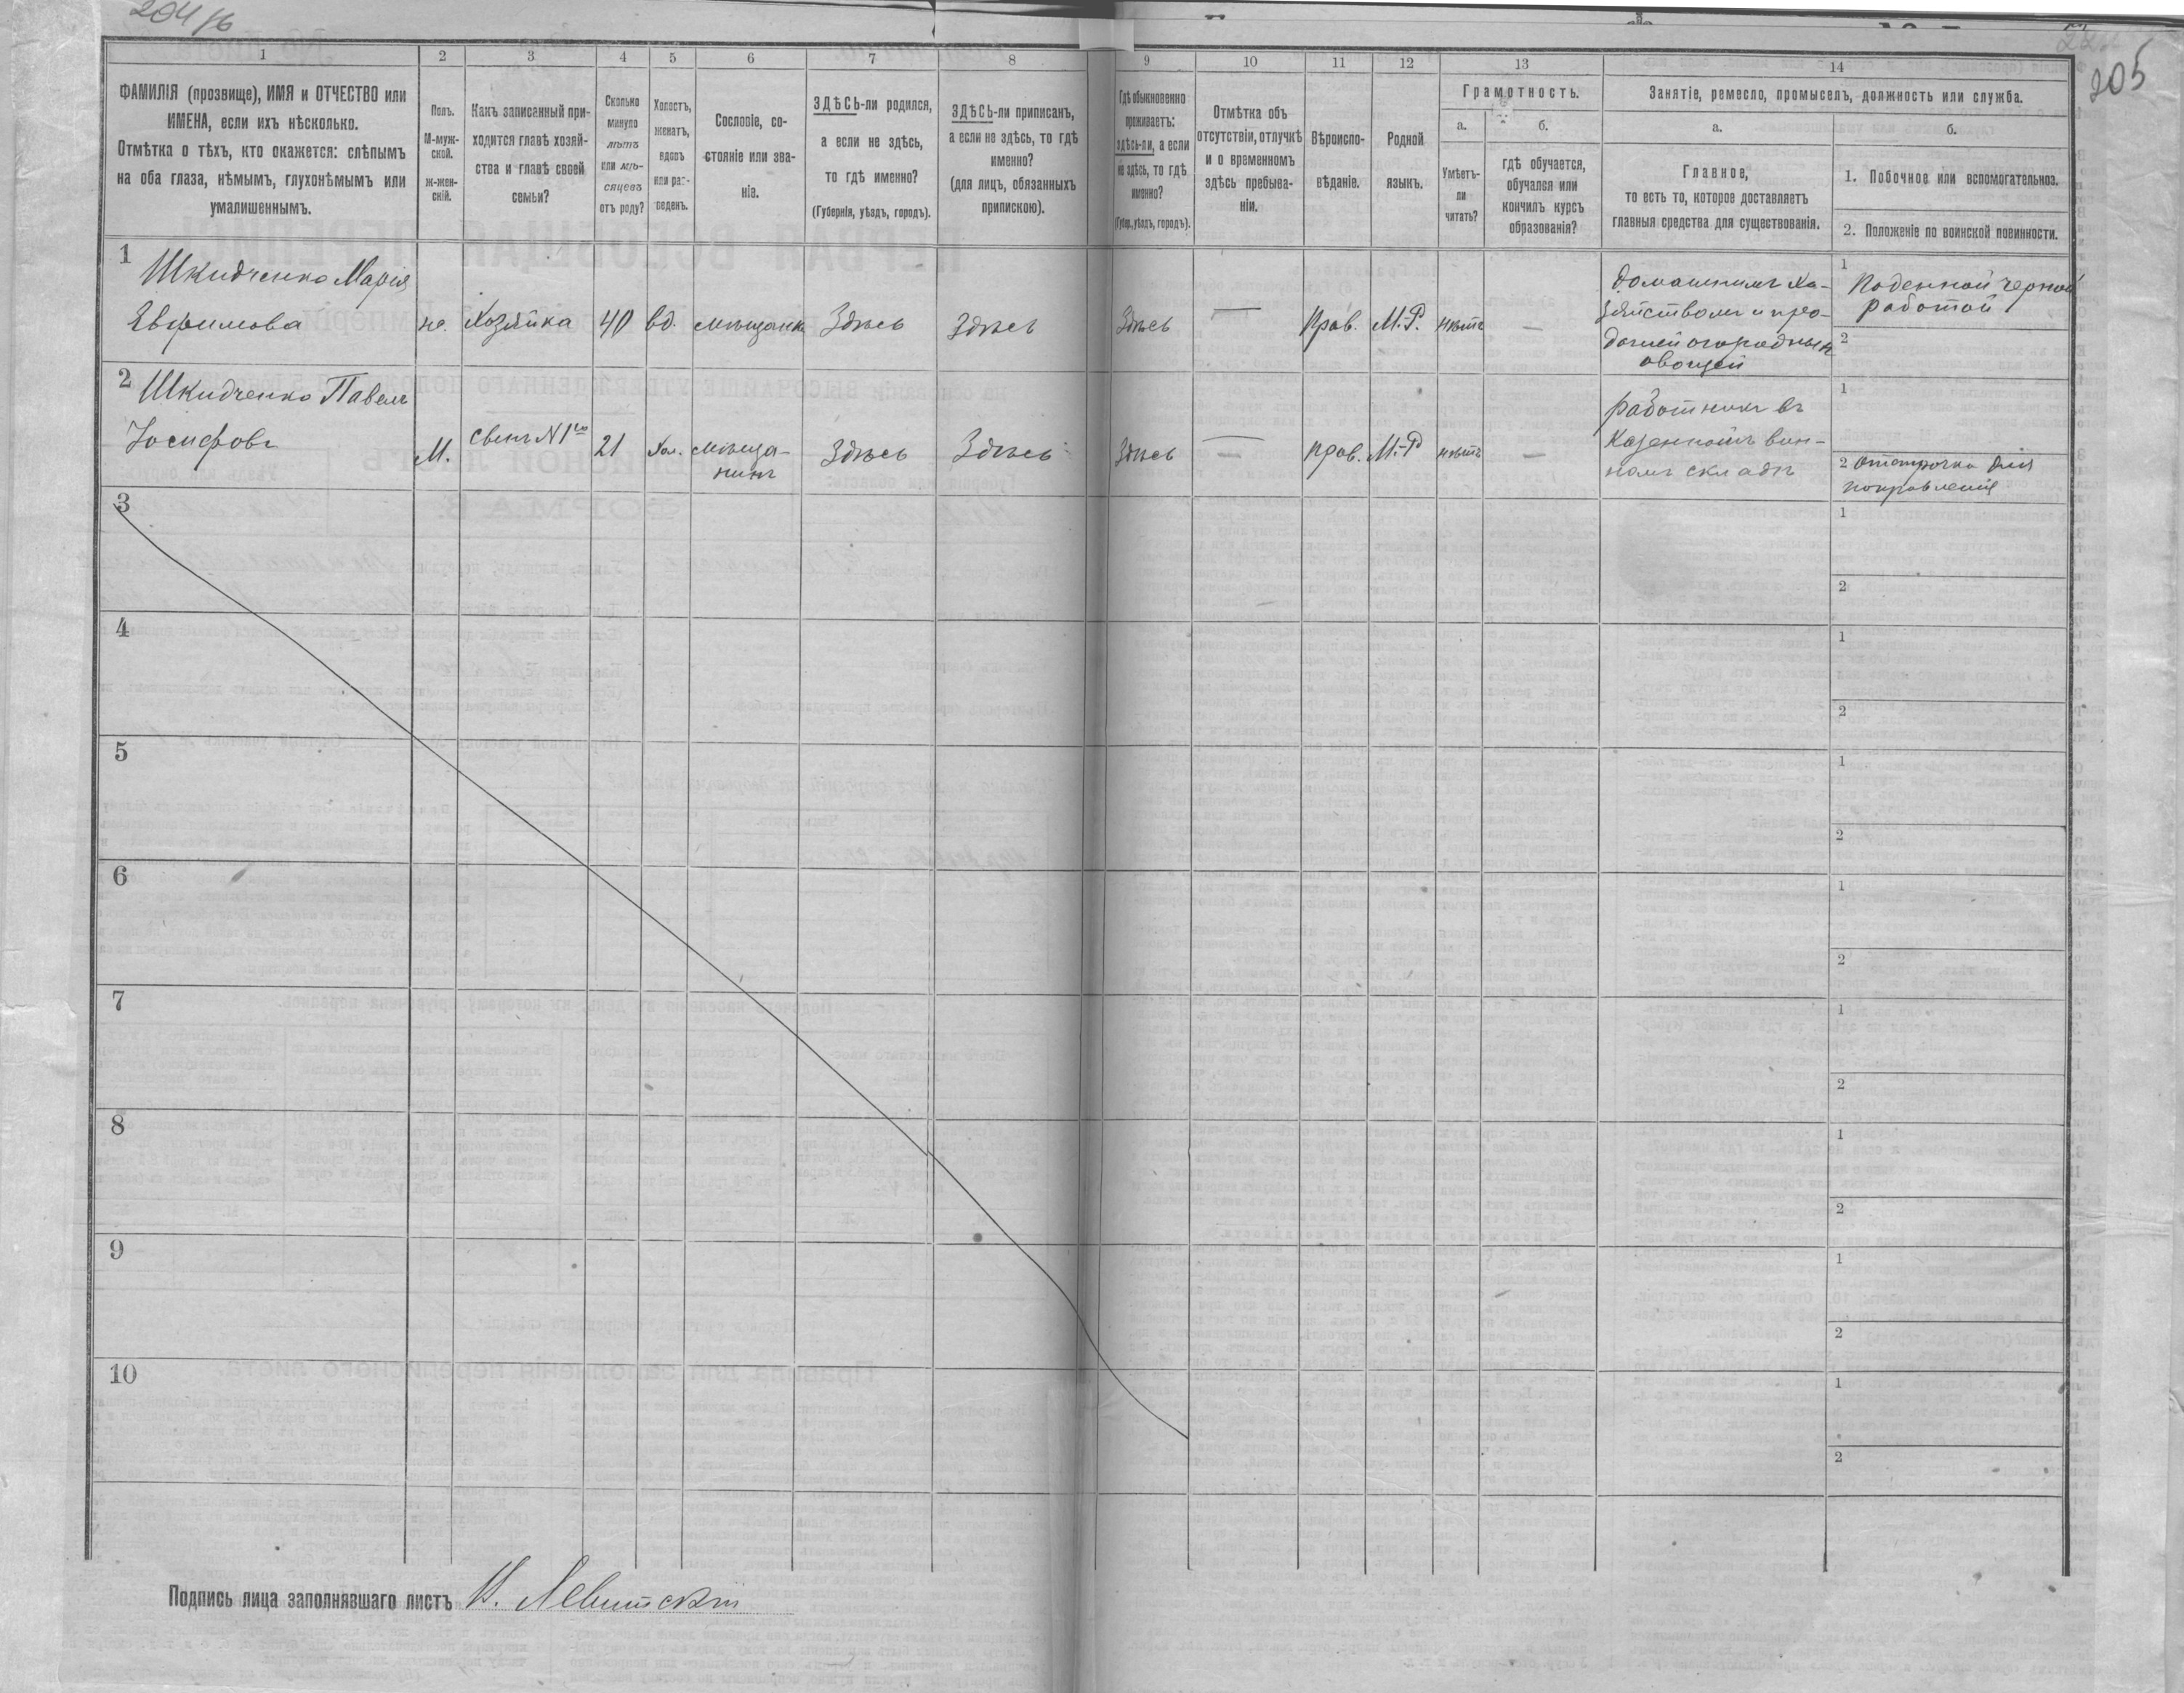 204/б
205
1
2
3
4
5
6
7
8
9
10
11
12
13
14
ФАМИЛІЯ (прозвище), ИМЯ и ОТЧЕСТВО или
ИМЕНА, если ихъ нѣсколько.
Отмѣтка о тѣхъ, кто окажется: слѣпымъ
на оба глаза, нѣмымъ, глухонѣмымъ или
умалишеннымъ.
Полъ.
М-муж-
ской.
ж-жен-
скій.
Какъ записанный при-
ходится главѣ хозяй-
ства и главѣ своей
семьи?
Сколько
минуло
лѣтъ
или мѣ-
сяцевъ
отъ роду?
Холостъ,
женатъ,
вдовъ
или раз-
веденъ.
Сословіе, со-
стояніе или зва-
ніе.
ЗДѢСЬ-ли родился,
а если не здѣсь,
то гдѣ именно?
(Губернія, уѣздъ, городъ).
ЗДѢСЬ-ли приписанъ,
а если не здѣсь, то гдѣ
именно?
(для лицъ, обязанныхъ
припискою).
Гдѣ обыкновенно
проживаетъ:
здѣсь-ли, а если
не здѣсь, то гдѣ
именно?
(Губер., уѣздъ, городъ).
Отмѣтка объ
отсутствіи, отлучкѣ
и о временномъ
здѣсь пребыва-
ніи.
Вѣроиспо-
вѣданіе.
Родной
языкъ.
Грамотность.
а.
Умѣетъ-
ли
читать?
б.
гдѣ обучается,
обучался или
кончилъ курсъ
образованія?
Занятіе, ремесло, промыселъ, должность или служба.
а.
Главное,
то есть то, которое доставляетъ
главныя средства для существованія.
б.
1. Побочное или вспомогательное.
2. Положеніе по воинской повинности.
1
Шкидченко Марія
Евфимова
же.
Хозяйка
40
вд.
мѣщанка
Здѣсь
Здѣсь
Здѣсь
—
Прав.
М.-Р.
нѣтъ
—
домашнимъ хо-
зяйствомъ и про-
дажей огородныхъ
овощей
1
Поденной черной
работой
2
2
Шкидченко Павелъ
Іосифовъ
М.
сынъ №1го
21
Хол.
мѣща-
нинъ
Здѣсь
Здѣсь
Здѣсь
—
прав.
М.-Р
нѣтъ
—
работникъ въ
Казенномъ вин-
номъ складѣ
1
2 Отсрочка для
поправленія
3
1
2
4
1
2
5
1
2
6
1
2
7
1
2
8
1
2
9
1
2
10
1
2
Подпись лица заполнявшаго листъ
Левитскій